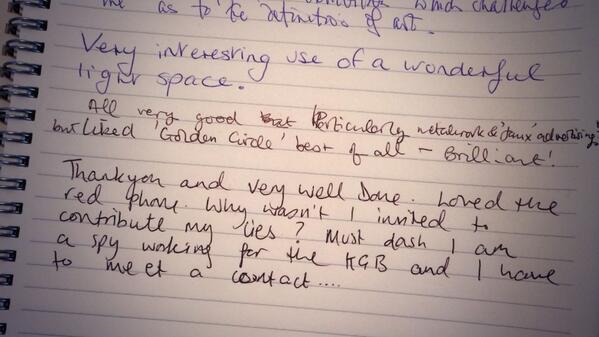 me as to be definition of art. which challenged
Very interesting use of a wonderful
light space.
All very good Particularly metalwork & 'faux' advertising!
but liked 'Golden Circle' best of all – Brilliant!
Thankyou and very well Done. Loved the
red phone. Why wasn't I invited to
contribute my lies? Must dash I am
a spy working for the KGB and I have
to meet a contact....